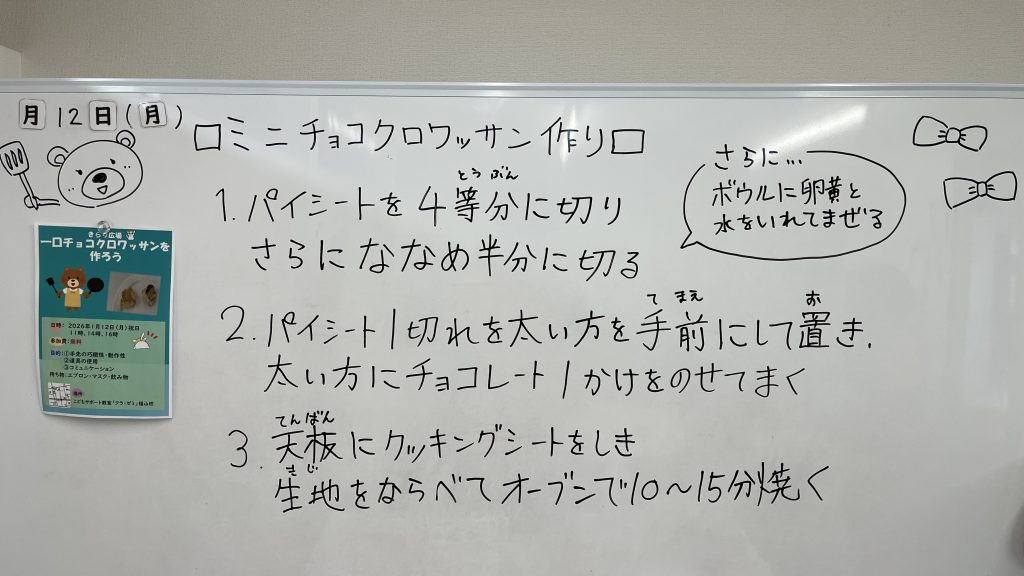 月12日(月)
□ミニチョコクロワッサン作り□
とうぶん
1. パイシートを4等分に切り
さらにななめ半分に切る
さらに…
ボウルに卵黄と
水をいれてまぜる
てまえ お
2. パイシート1切れを太い方を手前にして置き、
太い方にチョコレート1かけをのせてまく
てんばん
3. 天板にクッキングシートをしき
きじ
生地をならべてオーブンで10～15分焼く
きらり広場
一口チョコクロワッサンを
作ろう
日時: 2026年1月12日(月)祝日
11時、14時、16時
参加費:無料
目的:①手先の巧緻性・動作性
②道具の使用
③コミュニケーション
持ち物:エプロン・マスク・飲み物
場所
こどもサポート教室「クラ・ゼミ」福山校